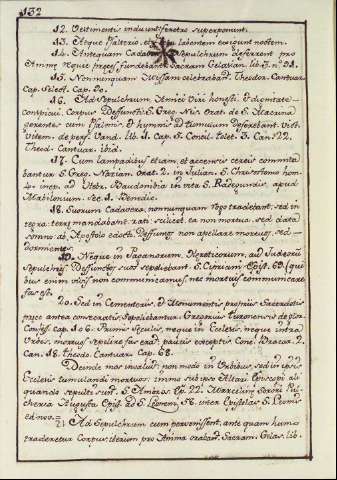 132
12. Vestimentis induunt feretro superponunt.
13. Atque Psalterio, labentem exigunt noctem.
14. Antequam Cadaver Sepulchrum deferrent pro
Anima ejus preces fundebant Sacram. Gelasian. lib. 3. n. 91.
15. Nonnunquam Missam celebrabant Theodor. Cantuar.
Cap. Select. Cap. 90.
16. Ad Sepulchrum, Amici Viri honesti, et dignitate
conspicui Corpus Deffuncti S. Greg. Nis. Orat. de S. Macrina
gerente cum Psalmis, et hymnis ad tumulum deferebant. Vict.
Vitem. de pers. Vand. lib. 1. Cap. 5. Concil. Tolet. 3. Can. 22.
Theod. Cantuar. ibid.
17. Cum lampadibus etiam, et accensis cereis commita
bantur S. Greg. Nazian. orat. 2. in Julian. S. Chrisostomo hom.
4. in ep. ad Hebr. Baudonibia in vita S. Radegundis, apud
Mabilonium. Sec. 1. Benedic.
18. Suorum Cadavera, nonnunquam Rogo tradebant, sed in
terra mandabant, rati scilicet ea non mortua, sed data
somno, ab Apostolo edocta Deffunctos non apellare mortuos, sed
dormientes.
19. Neque in Paganorum, Hereticorum, aut Judeorum
Sepulchris Deffunctos suos sepeliebant. S. Ciprian. Epist. 68. (qui
bus enim vivis non communicamus, nec mortuis communicare
fas est.
20. Sed in Cementeriis, et Monumentis propriis Sacerdotis
prece antea consecratis Sepeliebantur. Gregorius Turonensis de glor.
Confess. cap. 106. Primis Seculis, neque in Eclesia, neque intra
Urbes, mortuos sepelire fas erat, paucis exceptis Conc. Bracar. 2.
Can. 18. Theod. Cantuar. Cap. 68.
Deinde mos invaluit, non modo in Urbibus, sed in ipsis
Eclesiis tumulandi mortuos, immo sub ipso Altari Episcopi ali
quando sepulti sunt. S. Ambros. Ep. 22. Marcelinæ Sorori Pul
cheria Augusta Epist. ad S. Leonem, 58. inter Epistolas S. Leonis
ed. nov.
21. Ad Sepulchrum cum pervenissent, ante quam humo
traderetur Corpus, iterum pro Anima orabant. Sacram. Gelas. lib.